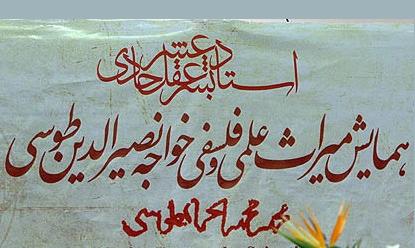 استاد بشر عقل حادی عشر
همایش میراث علمی و فلسفی خواجه نصیر الدین طوسی